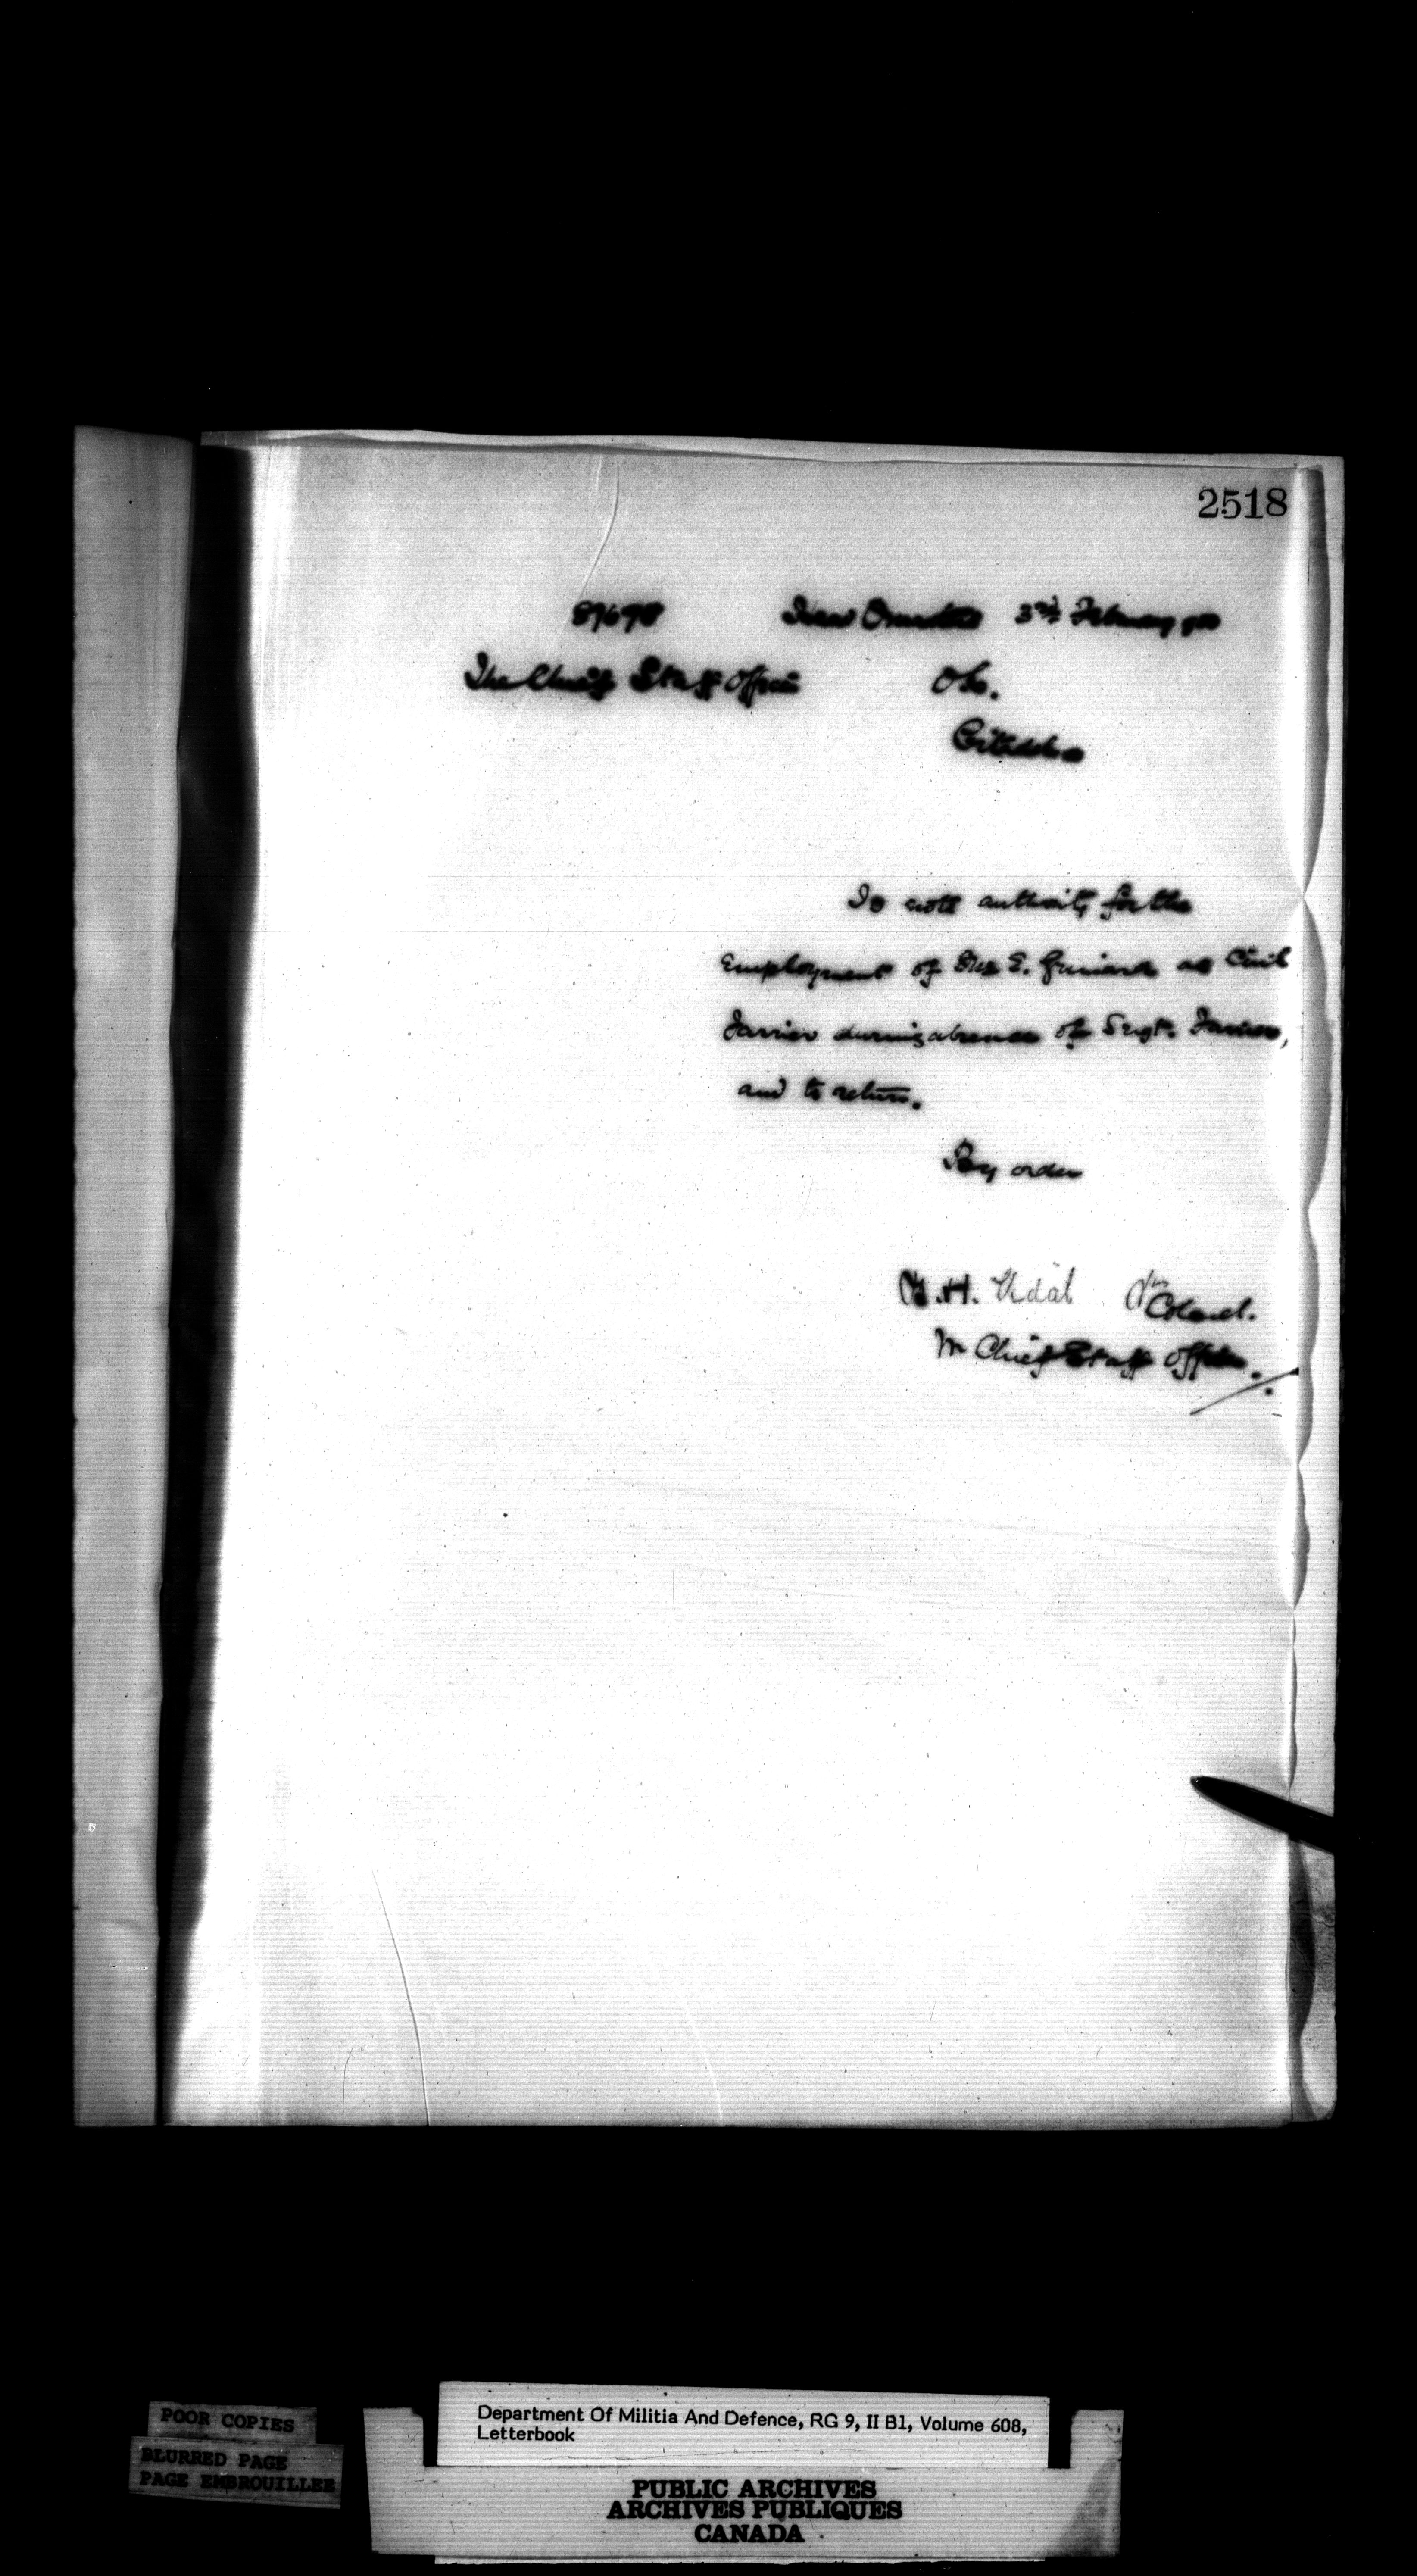 2518
87678 Head Quarters 3rd February 900
The Chief Staff Officer O.C.
Citadel
To note authority for the
employment of E. as Civil
Farrier during absence of Sergt. Farrier,
and to return.
By order
B.H. Vidal Lt Colonel.
for Chief Staff Officer.
POOR COPIES
BLURRED PAGE
PAGE EMBROUILLEE
Department Of Militia And Defence, RG 9, II B1, Volume 608,
Letterbook
PUBLIC ARCHIVES
ARCHIVES PUBLIQUES
CANADA